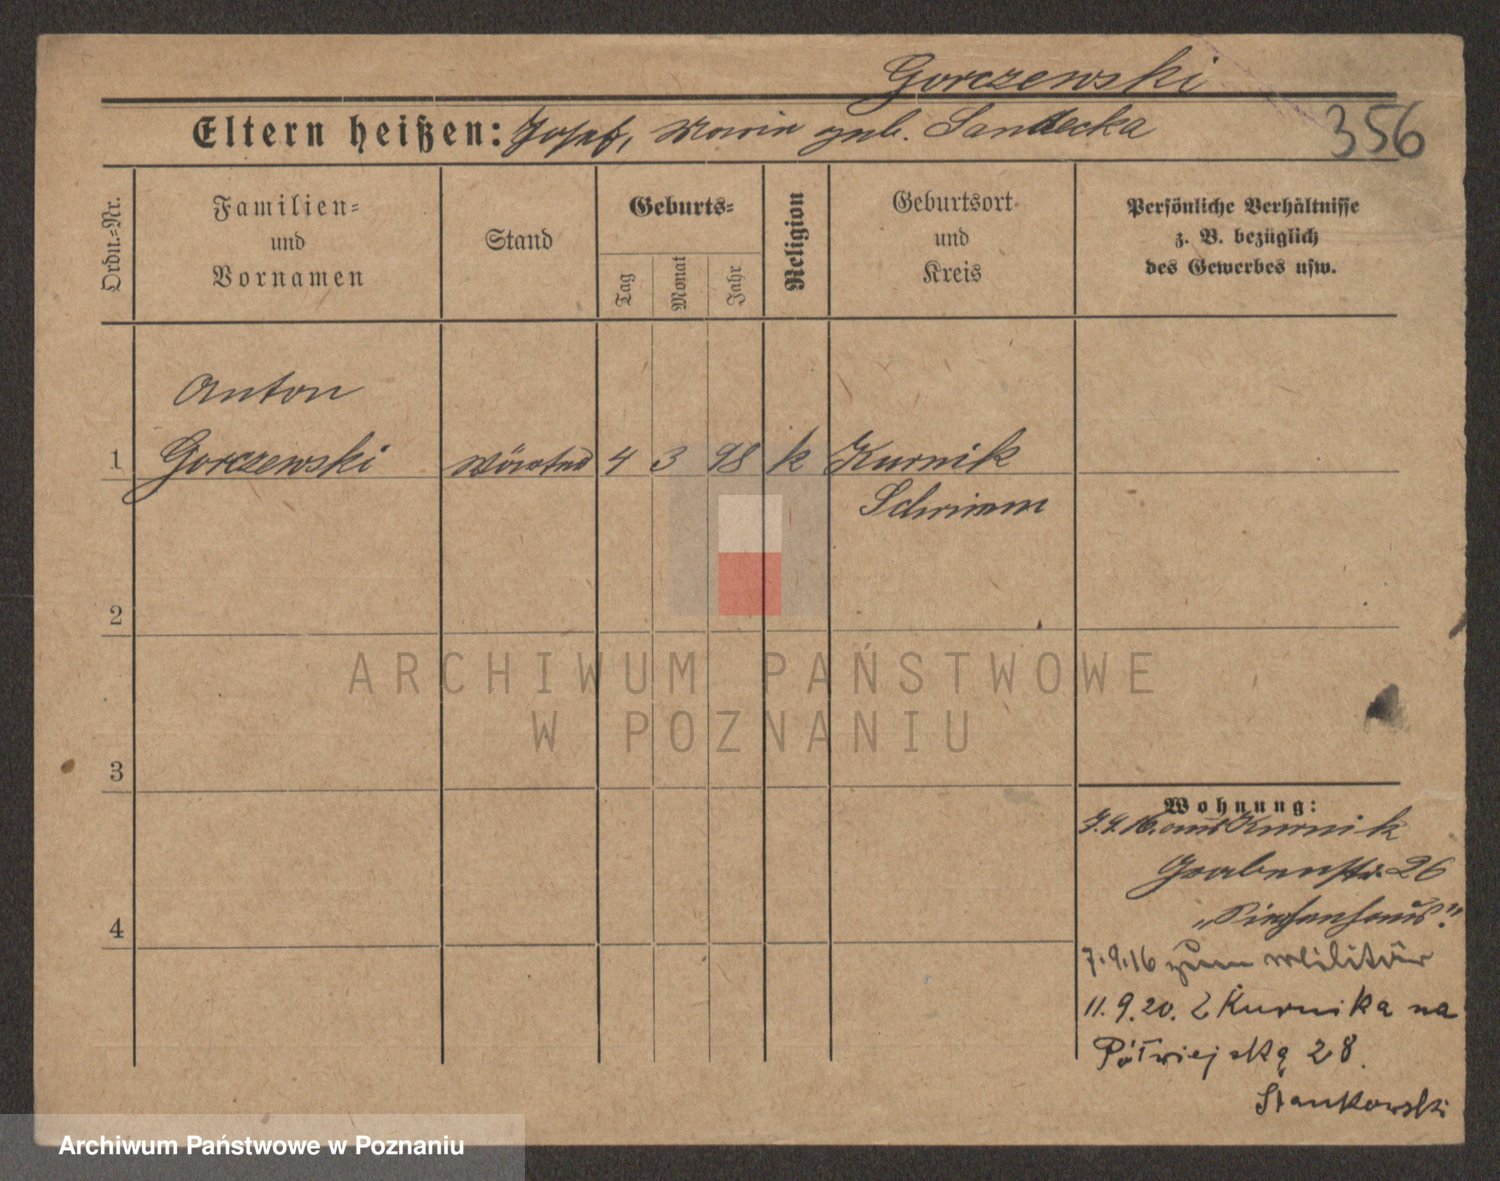 Gorczewski
Eltern heißen: Josef, Maria geb. Sandecka
356
Ordn.-Nr.
Familien-
und
Vornamen
Stand
Geburts-
Tag
Monat
Jahr
Religion
Geburtsort
und
Kreis
Persönliche Verhältnisse
z. B. bezüglich
des Gewerbes usw.
Anton
1 Gorczewski 4 3 98 k Kurnik
Schrimm
2
3
4
Wohnung:
aus Kurnik
Grabenstr. 26
"Siechenhaus".
7.9.16 zum Militär
11.9.20. Z Kurnika na
Półwiejską 28.
Stankowski
ARCHIWUM PAŃSTWOWE
W POZNANIU
Archiwum Państwowe w Poznaniu